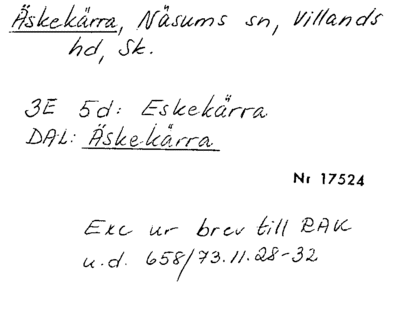 Äskekärra, Näsums sn, Villands
hd, Sk.
3E 5d: Eskekärra
DAL: Äskekärra
Nr 17524
Exc ur brev till RAK
u.d. 658/73.11.28-32